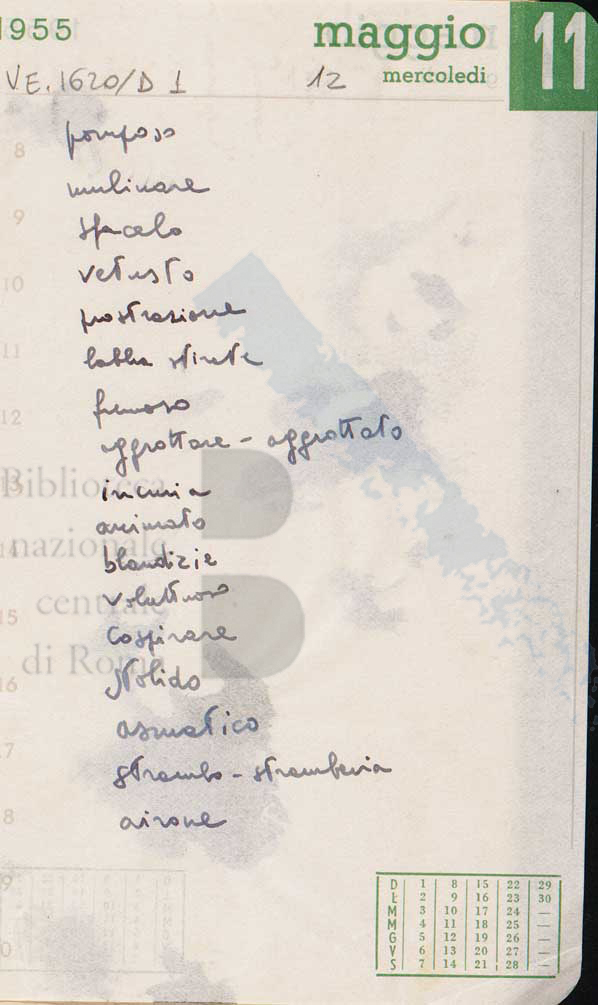 1955 maggio 11
mercoledì
V.E. 1620/D 1 12
8
pomposo
mulinare
9
sfacelo
10
vetusto
prostrazione
11
labbra stirate
12
fumoso
aggrottare - aggrottato
13
incuria
animato
14
blandizie
15
voluttuoso
cospirare
16
stolido
asmatico
17
strambo - stramberia
18
airone
Biblioteca
nazionale
centrale
di Roma
D 1 8 15 22 29
L 2 9 16 23 30
M 3 10 17 24 —
M 4 11 18 25 —
G 5 12 19 26 —
V 6 13 20 27 —
S 7 14 21 28 —